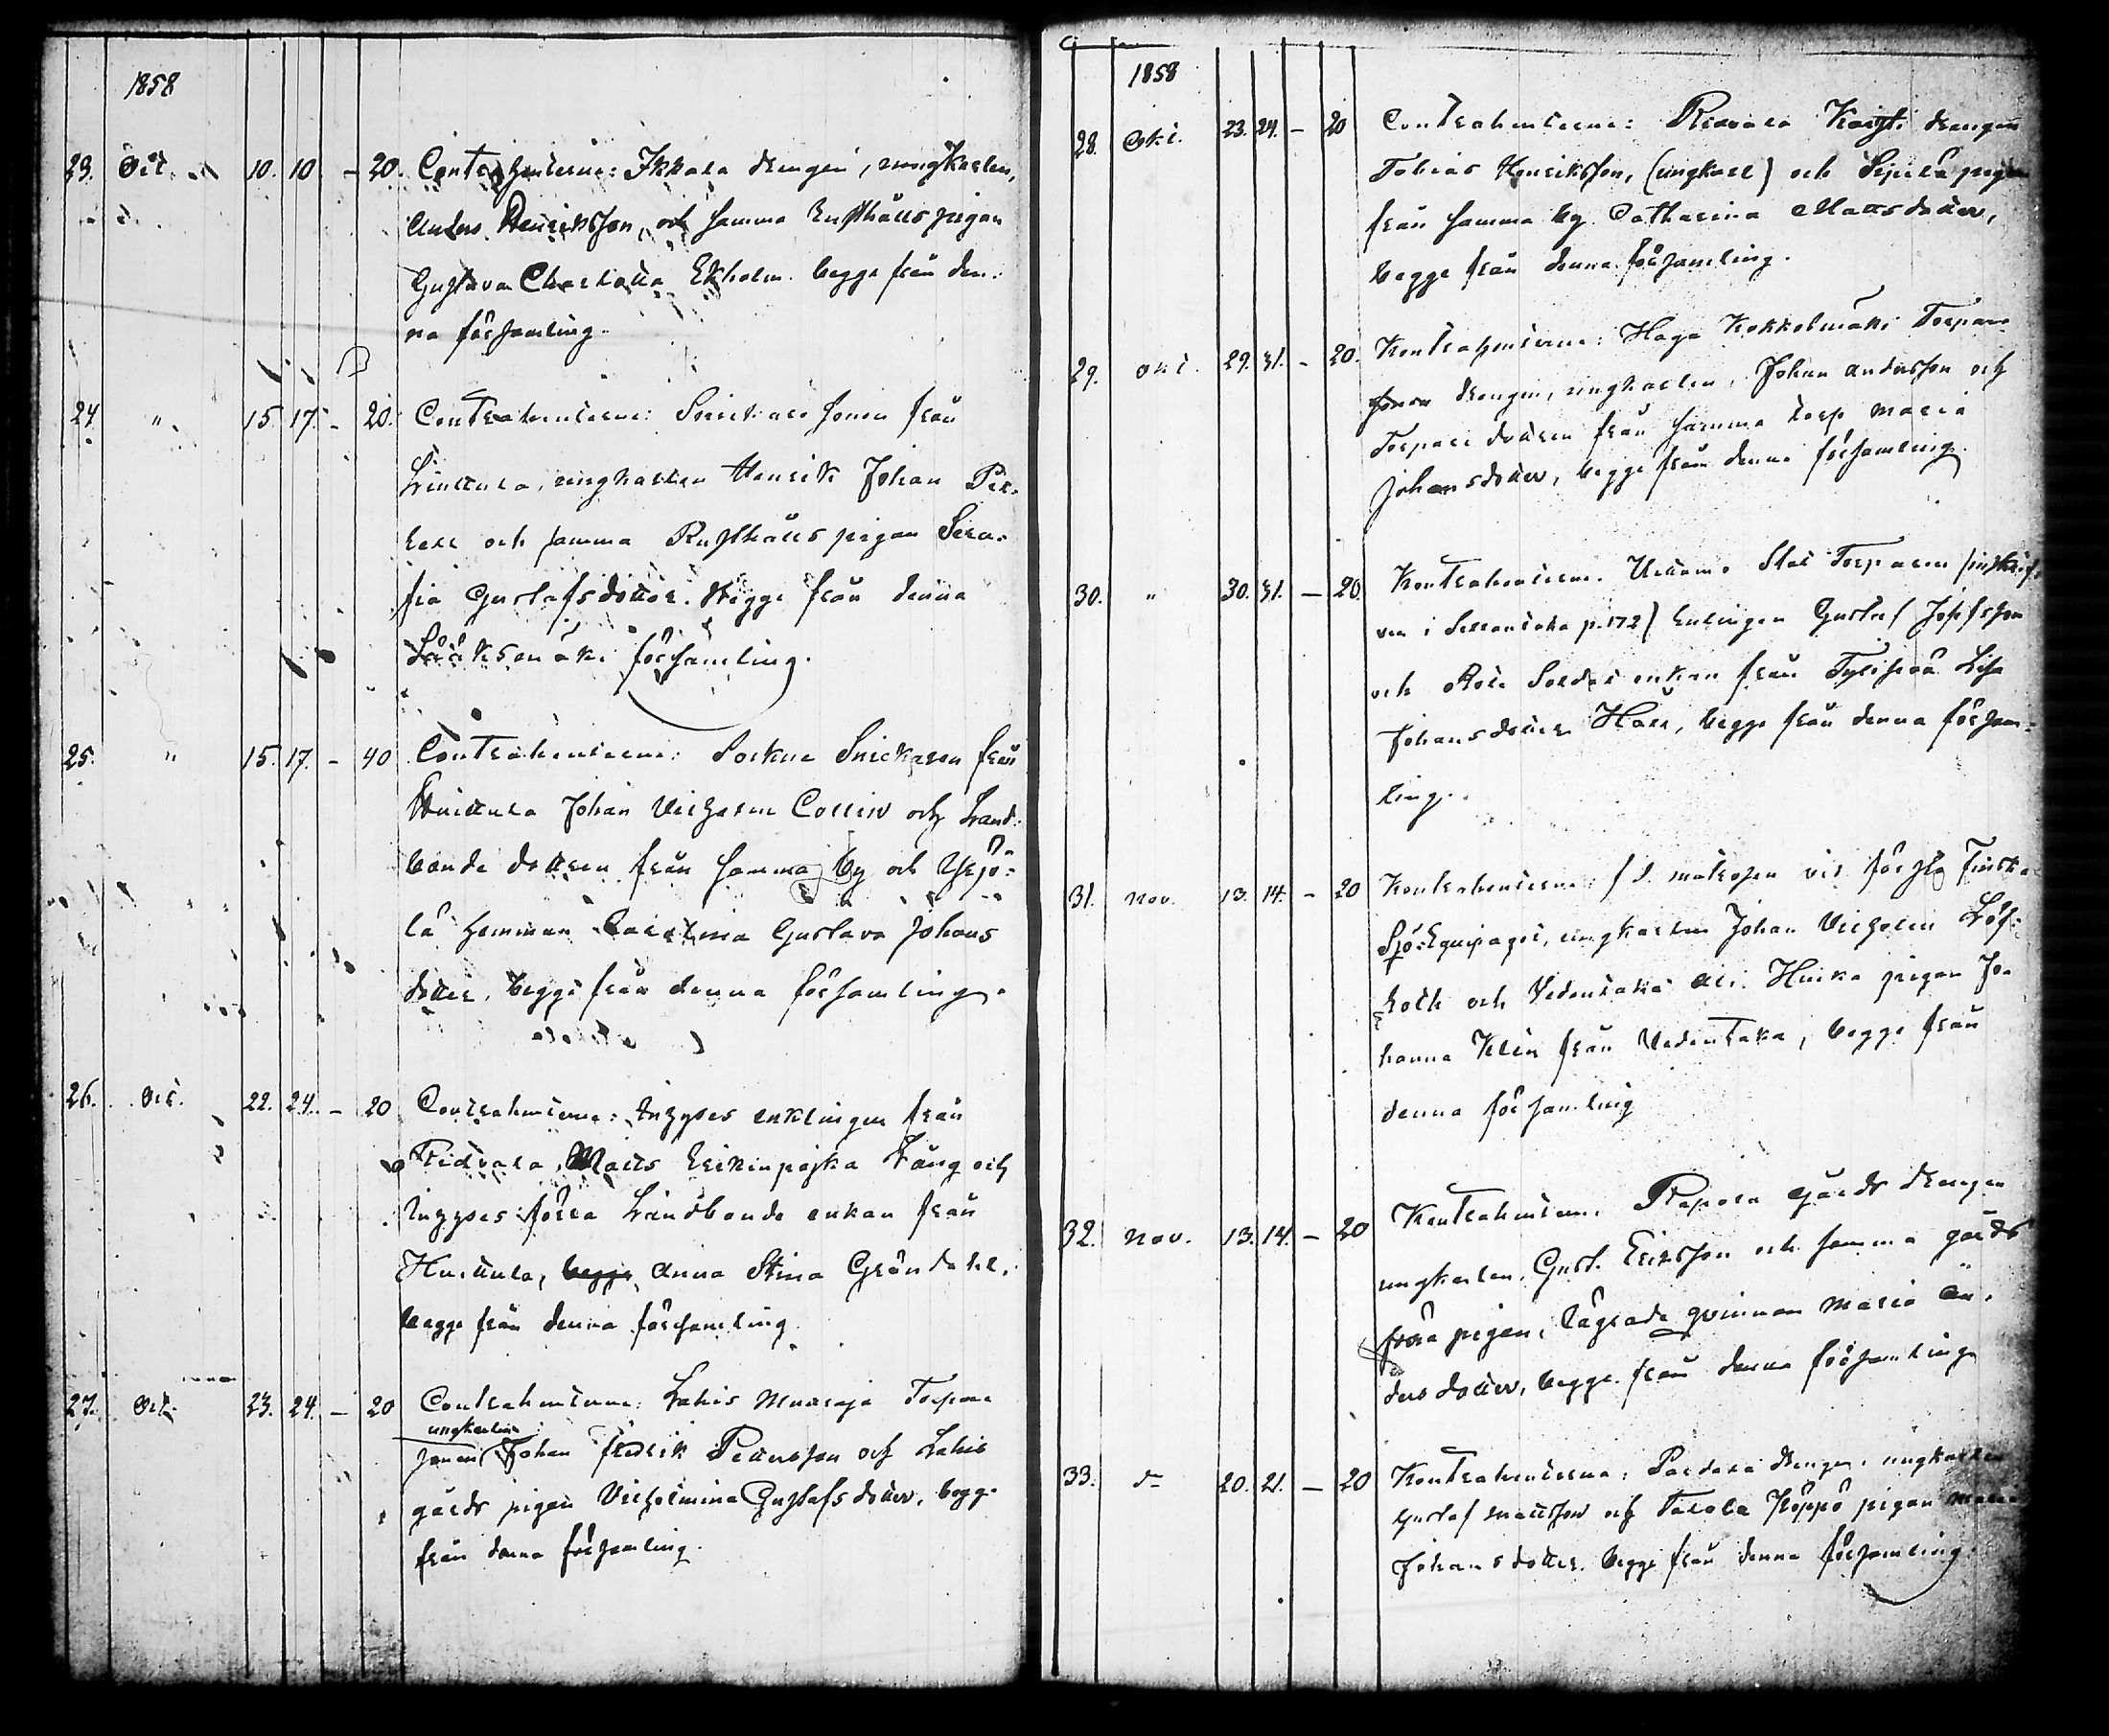 1858
23. Oct. 10. 10 - 20. Contrahenterne: Ikkala drengen, ungkarlen,
Anders Henriksson, och samma Rusthålls pigan
Gustava Charlotta Ekholm. begge från den-
na församling.
24 " 15 17. - 20. Contrahenterne: Snickare sonen från
ungkarlen Henrik Johan
och samma Rusthålls pigan Sera-
fia Gustafsdotter. Begge från denna
Lääksmäki församling.
25. " 15. 17. - 40 Contrahenterne: Sockne Snickaren från
Huittula Johan Vilhelm Collin och Land-
bonde dottren från samma by och Yrjö-
lä hemman Carolina Gustava Johans
dotter, begge från denna församling.
26. Oct. 22. 24. - 20 Contrahenterne: Inhyses enklingen från
Ridvala, Matts Erikinpojka Lång och
Inhyses förra Landbonde enkan från
Huittula, begge Anna Stina Gröndahl,
begge från denna församling.
27. Oct. 23. 24. - 20 Contrahenterne: Lahis Muuraja Torpare
ungkarlen
sonen Johan Fredrik Pettersson och Lahis
gårds pigan Vilhelmina Gustafsdotter, begge
från denna församling.
1858
28. Okt. 23. 24. - 20 Contrahenterne: drengen
Tobias Henriksson, (ungkarl) och Seppälä pigan
från samma by Catharina Mattsdotter,
begge från denna församling.
29. Okt. 29. 31. - 20. Kontrahenterne: Haga Kokkolmäki Torpare
drengen, ungkarlen, Johan Andersson och
Torpare dottren från samma torp Maria
Johansdotter, begge från denna församling.
30. " 30. 31. - 20. Kontrahenterne. Torparen (inskrif-
ven i p. 172) Enklingen Gustaf Josefsson
och Soldat enkan från Lisa
Johansdotter Harr, begge från denna försam-
ling.
31. Nov. 13. 14. - 20 Kontrahenterne: f.d. matrosen vid första Finska
Sjö-Equipaget, ungkarlen Johan Vilhelm Löf-
roth och Vedentaka Ali Huika pigan Jo-
hanna Klen från Vedentaka, begge från
denna församling
32. Nov. 13. 14. - 20 Kontrahenterne. Rapola gårds drengen
ungkarlen, Gust. Eriksson och samma gårds
förra pigan, lägrade qvinnan Maria An-
dersdotter, begge från denna församling
33. d:o 20. 21. - 20 Kontrahenterne: drengen, ungkarlen
Gustaf Mattsson och Tarola Höppö pigan Maria
Johansdotter. begge från denna församling.